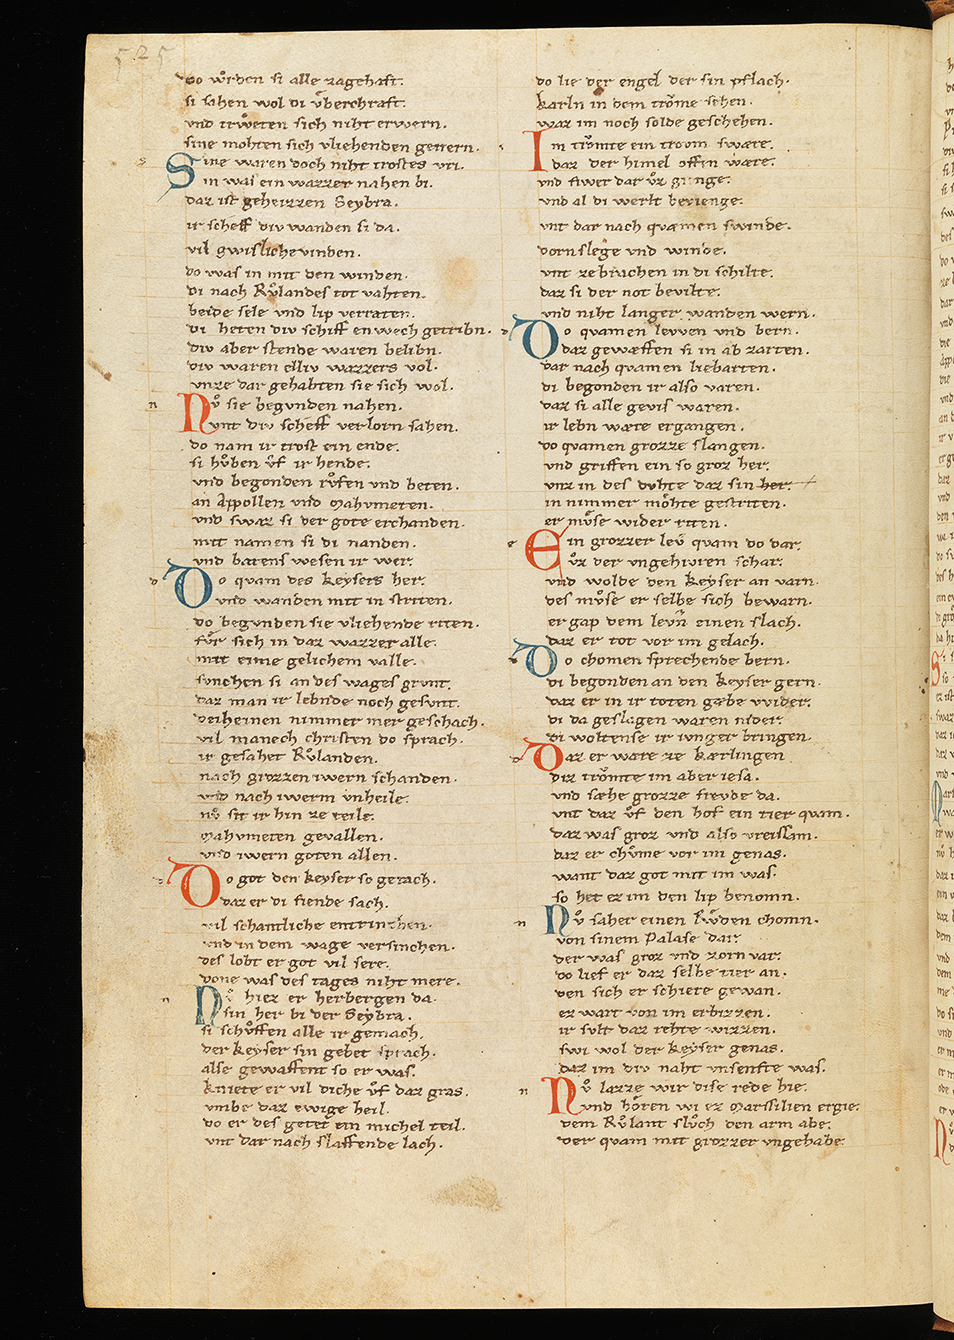 525
do wͦrden si alle zagehaft.
si sahen wol di v̍berchraft.
vnd trwͤten sich niht erwern.
sine mohten sich vliehenden genern.
Sine waren doch niht trostes vri.
in was ein wazzer nahen bi.
daz ist geheizzen Seybra.
ir scheff div wanden si da.
vil gwisliche vinden.
do was in mit den winden.
di nach Rvͦlandes tot vahten.
beide sele vnd lip verraten.
di heten div schiff enwech getribn.
div aber stende waren belibn.
div waren elliv wazzers vol.
vnze dar gehabten sie sich wol.
Nvͦ sie begvnden nahen.
vnt div scheff verlorn sahen.
do nam ir trost ein ende.
si hvͦben vͦf ir hende.
vnd begonden rvͦfen vnd beten.
an Appollen vnd Mahvmeten.
vnd swaz si der gote erchanden.
mit namen si di nanden.
vnd batens wesen ir wer.
Do quam des keysers her.
vnd wanden mit in striten.
do begvnden sie vliehende riten.
fvͤr sich in daz wazzer alle.
mit eime gelichem valle.
svnchen si an des wages grvnt.
daz man ir lebnde noch gesvnt.
deiheinen nimmer mer geschach.
vil manech christen do sprach.
ir gesahet Rvͦlanden.
nach grozzen iwern schanden.
vnd nach iwerm vnheile.
nvͦ sit ir hin ze teile.
Mahvmeten gevallen.
vnd iwern goten allen.
Do got den keyser so gerach.
daz er di fiende sach.
vil schantliche entrinchen.
vnd in dem wage versinchen.
des lobt er got vil sere.
done was des tages niht mere.
Nvͦ hiez er herbergen da.
sin her bi der Seybra.
si schvͦffen alle ir gemach.
der keyser sin gebet sprach.
alse gewaffent so er was.
kniete er vil diche vͦf daz gras.
vmbe daz ewige heil.
do er des getet ein michel teil.
vnt dar nach slaffende lach.
do lie der engel der sin pflach.
karln in dem trovme sehen.
waz im noch solde geschehen.
Im trovmte ein trovm swære.
daz der himel offen wære.
vnd fiwer dar vͦz gienge.
vnd al di werlt bevienge.
vnt dar nach quæmen swinde.
dornslege vnd winde.
vnt zebræchen in di schilte.
daz si der not bevilte.
vnd niht langer wanden wern.
Do quamen lewen vnd bern.
daz gewæffen si in ab zarten.
dar nach quamen liebarten.
di begonden ir also varen.
daz si alle gevis waren.
ir lebn wære ergangen.
do quamen grozze slangen.
vnd griffen ein so groz her.
vnz in des duhte daz sin her.
in nimmer möhte gestriten.
er mvͤse wider riten.
Ein grozzer lev quam do dar.
vͦz der vngehivren schar.
vnd wolde den keyser an varn.
des mvͦse er selbe sich bewarn.
er gap dem levn einen slach.
daz er tot vor im gelach.
Do chomen sprechende bern.
di begonden an den keyser gern.
daz er in ir toten gæbe wider.
di da geslagen waren nider.
di woltense ir ivnger bringen.
Daz er wære ze kærlingen
diz trovmte im aber iesa.
vnd sæhe grozze frevde da.
vnt daz vͦf den hof ein tier quam.
daz was groz vnd also vreissam.
daz er chvͦme vor im genas.
want daz got mit im was.
so het ez im den lip benomn.
Nvͦ saher einen rvͤden chomn.
von sinem Palase dar.
der was groz vnd zorn var.
do lief er daz selbe tier an.
den sich er schiere gewan.
ez wart von im erbizzen.
ir svlt daz rehte wizzen.
swi wol der keyser genas.
daz im div naht vnsenfte was.
Nvͦ lazze wir dise rede hie.
vnd hören wi ez Marssilien ergie.
dem Rvͦlant slvͦch den arm abe.
der quam mit grozzer vngehabe.